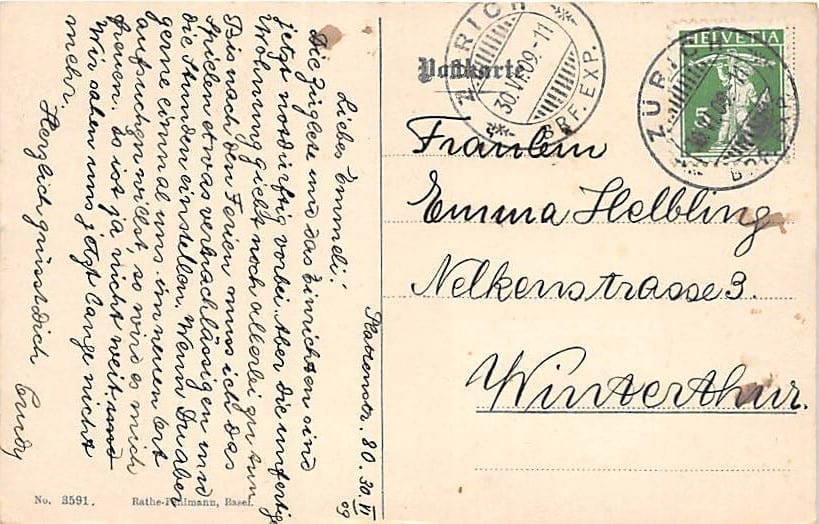 Plattenstr. 80. 30. VI 09
Liebes Emmeli!
Die Züglete und das Einrichten sind
jetzt notdürftig vorbei. Aber die unfertige
Wohnung giebt noch allerlei zu tun
Bis nach den Ferien muss ich das
Spielen etwas vernachlässigen und
die Stunden einstellen. Wenn Du aber
gerne einmal uns im neuen Ort
aufsuchen willst, so wird es mich
freuen. Es ist ja nicht weit und
Wir sahen uns jetzt lange nicht
mehr.
Herzlich grüsst dich
Trudy
Postkarte
ZÜRICH
30.VI.09-11
BRF. EXP.
HELVETIA
5
ZÜRICH
BRF. EXP.
Fräulein
Emma Helbling
Nelkenstrasse 3.
Winterthur.
No. 3591. Rathe-Fehlmann, Basel.